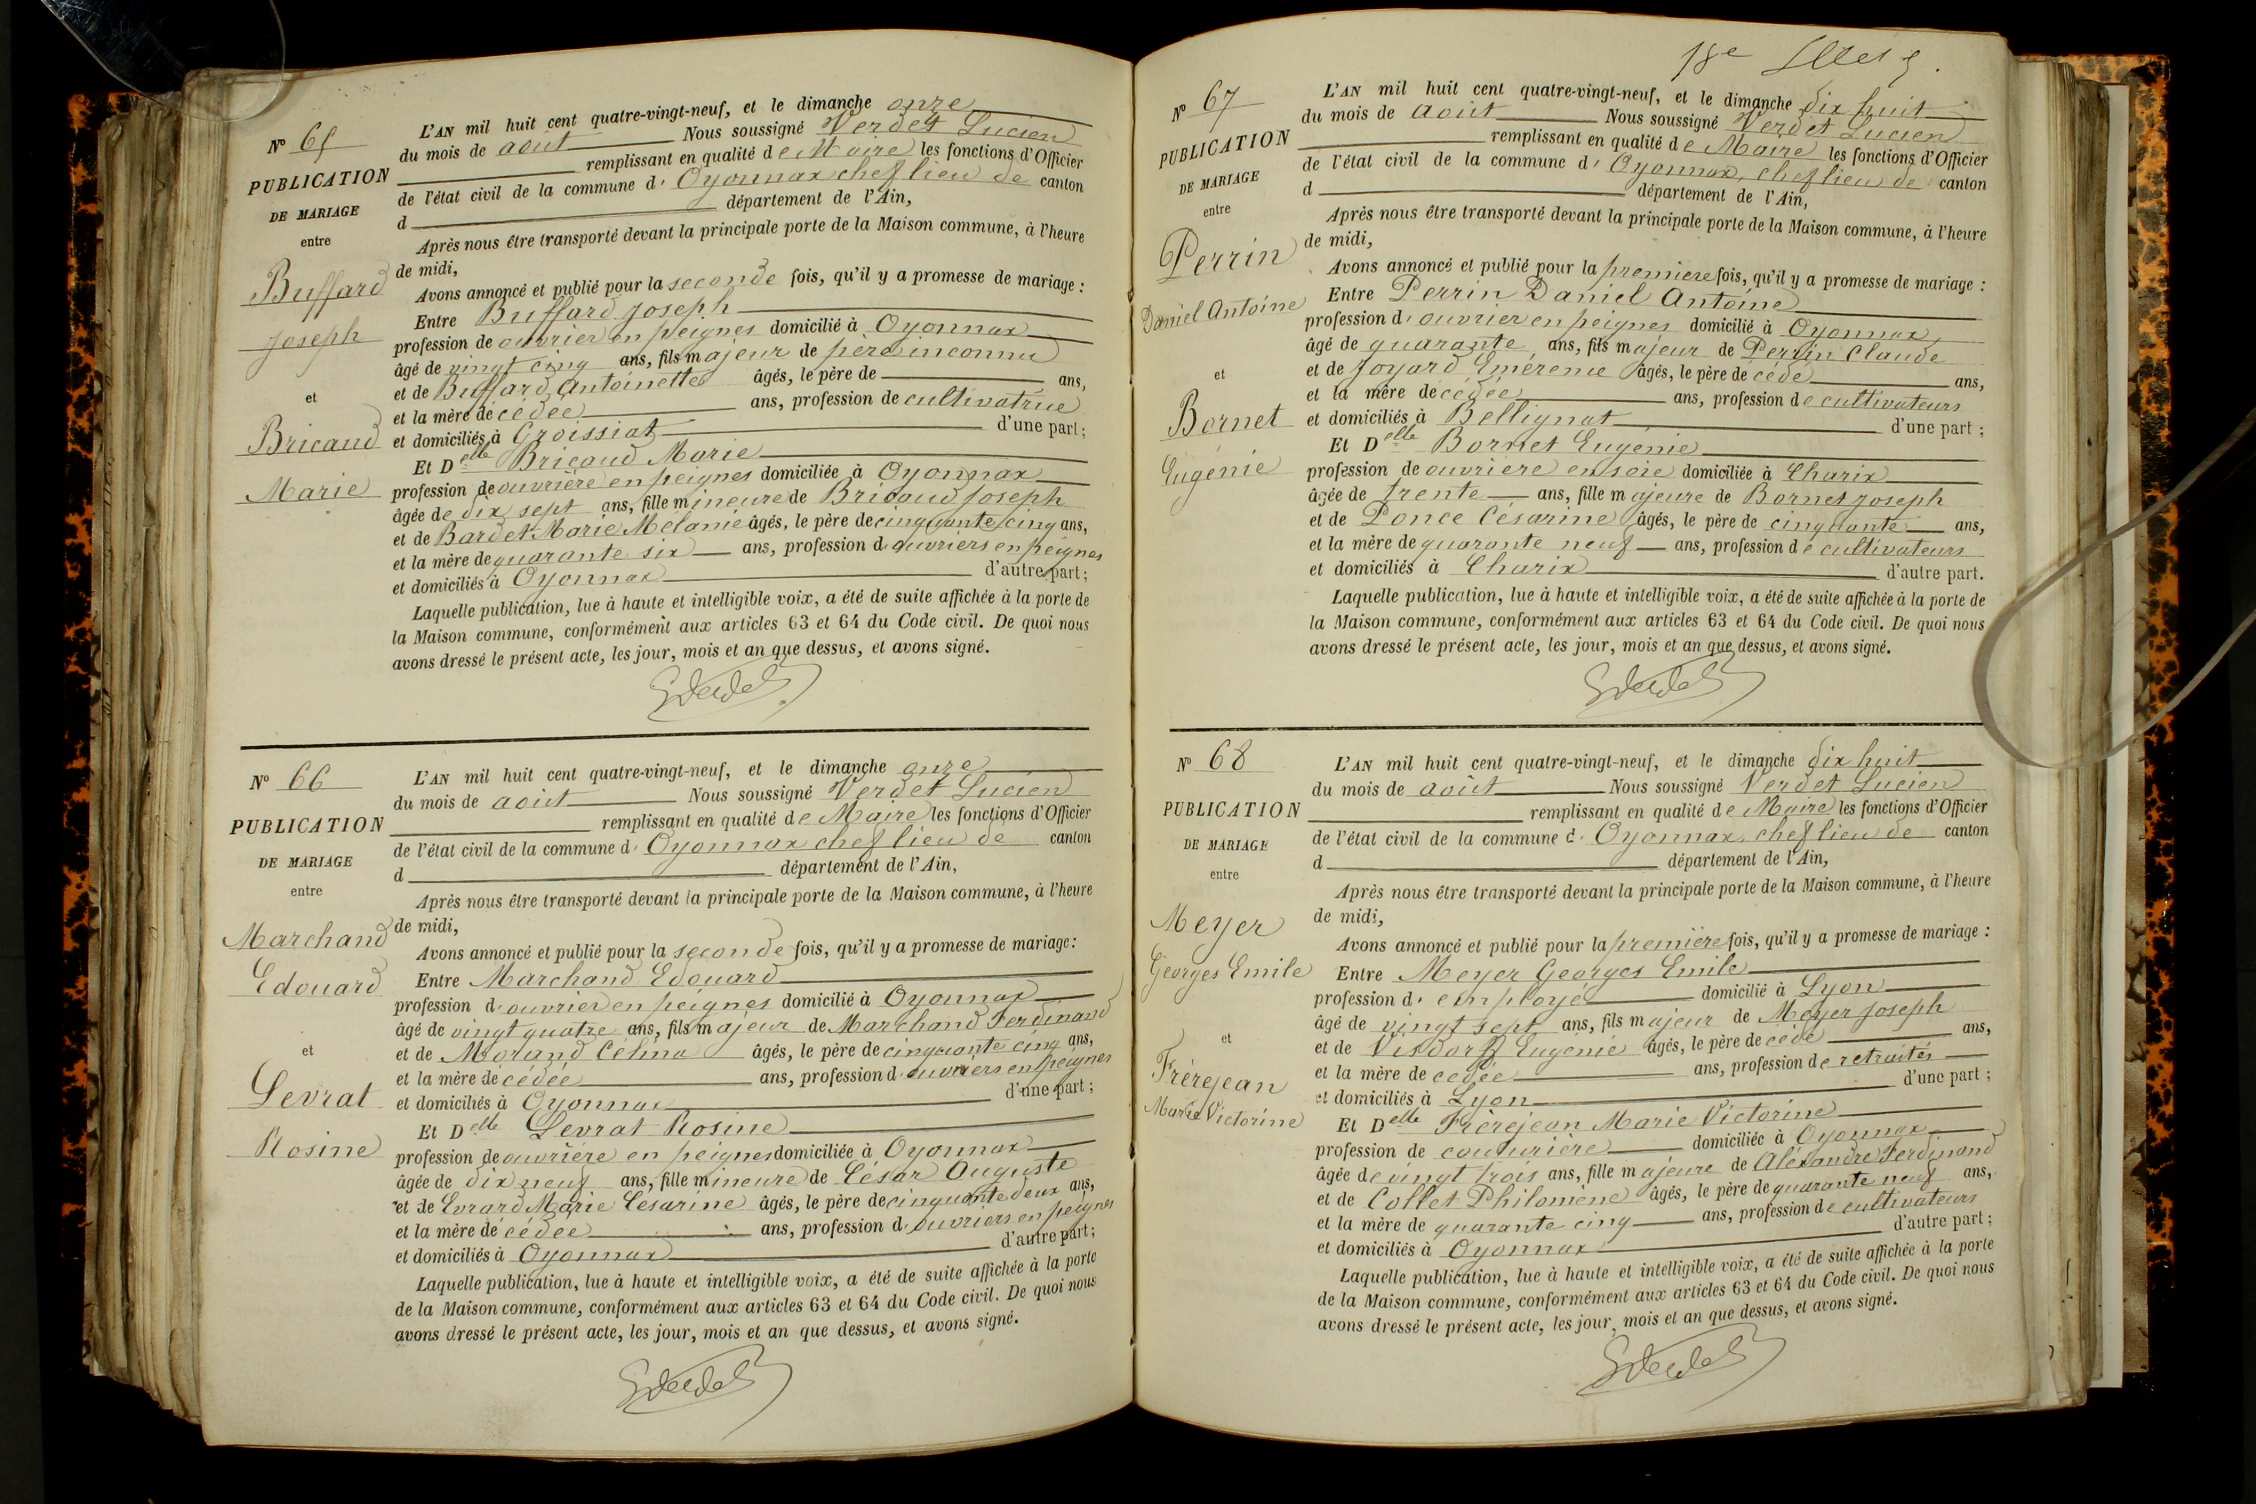 Nº 65
PUBLICATION
DE MARIAGE
entre
Buffard
Joseph
et
Bricaud
Marie
L'AN mil huit cent quatre-vingt-neuf, et le dimanche onze
du mois de août Nous soussigné Verdet Lucien
remplissant en qualité de Maire les fonctions d'Officier
de l'état civil de la commune d'Oyonnax chef lieu de canton
d département de l'Ain,
Après nous être transporté devant la principale porte de la Maison commune, à l'heure
de midi,
Avons annoncé et publié pour la seconde fois, qu'il y a promesse de mariage :
Entre Buffard Joseph
profession de ouvrier en peignes domicilié à Oyonnax
âgé de vingt cinq ans, fils majeur de père inconnu
et de Buffard Antoinette âgés, le père de ans,
et la mère décédée ans, profession de cultivatrice
et domiciliés à Groissiat d'une part ;
Et Delle Bricaud Marie
profession de ouvrière en peignes domiciliée à Oyonnax
âgée de dix sept ans, fille mineure de Bricaud Joseph
et de Bardet Marie Mélanie âgés, le père de cinquante cinq ans,
et la mère de quarante six ans, profession d'ouvriers en peignes
et domiciliés à Oyonnax d'autre part ;
Laquelle publication, lue à haute et intelligible voix, a été de suite affichée à la porte de
la Maison commune, conformément aux articles 63 et 64 du Code civil. De quoi nous
avons dressé le présent acte, les jour, mois et an que dessus, et avons signé.
Nº 66
PUBLICATION
DE MARIAGE
entre
Marchand
Edouard
et
Levrat
Rosine
L'AN mil huit cent quatre-vingt-neuf, et le dimanche onze
du mois de août Nous soussigné Verdet Lucien
remplissant en qualité de Maire les fonctions d'Officier
de l'état civil de la commune d'Oyonnax chef lieu de canton
d département de l'Ain,
Après nous être transporté devant la principale porte de la Maison commune, à l'heure
de midi,
Avons annoncé et publié pour la seconde fois, qu'il y a promesse de mariage :
Entre Marchand Edouard
profession d'ouvrier en peignes domicilié à Oyonnax
âgé de vingt quatre ans, fils majeur de Marchand Ferdinand
et de Morand Célina âgés, le père de cinquante cinq ans,
et la mère décédée ans, profession d'ouvriers en peignes
et domiciliés à Oyonnax d'une part ;
Et Delle Levrat Rosine
profession de ouvrière en peignes domiciliée à Oyonnax
âgée de dix neuf ans, fille mineure de César Auguste
et de Evrard Marie Césarine âgés, le père de cinquante deux ans,
et la mère décédée ans, profession d'ouvriers en peignes
et domiciliés à Oyonnax d'autre part ;
Laquelle publication, lue à haute et intelligible voix, a été de suite affichée à la porte
de la Maison commune, conformément aux articles 63 et 64 du Code civil. De quoi nous
avons dressé le présent acte, les jour, mois et an que dessus, et avons signé.
Nº 67
PUBLICATION
DE MARIAGE
entre
Perrin
Daniel Antoine
et
Bornet
Eugénie
L'AN mil huit cent quatre-vingt-neuf, et le dimanche dix huit
du mois de août Nous soussigné Verdet Lucien
remplissant en qualité de Maire les fonctions d'Officier
de l'état civil de la commune d'Oyonnax, chef lieu de canton
d département de l'Ain,
Après nous être transporté devant la principale porte de la Maison commune, à l'heure
de midi,
Avons annoncé et publié pour la première fois, qu'il y a promesse de mariage :
Entre Perrin Daniel Antoine
profession d'ouvrier en peignes domicilié à Oyonnax
âgé de quarante ans, fils majeur de Perrin Claude
et de Joyard Emérenie âgés, le père decédé ans,
et la mère décédée ans, profession de cultivateurs
et domiciliés à Bellignat d'une part ;
Et Delle Bornet Eugénie
profession de ouvrière en soie domiciliée à Charix
âgée de trente ans, fille majeure de Bornet Joseph
et de Ponce Césarine âgés, le père de cinquante ans,
et la mère de quarante neuf ans, profession de cultivateurs
et domiciliés à Charix d'autre part.
Laquelle publication, lue à haute et intelligible voix, a été de suite affichée à la porte de
la Maison commune, conformément aux articles 63 et 64 du Code civil. De quoi nous
avons dressé le présent acte, les jour, mois et an que dessus, et avons signé.
Nº 68
PUBLICATION
DE MARIAGE
entre
Meyer
Georges Emile
et
Frèrejean
Marie Victorine
L'AN mil huit cent quatre-vingt-neuf, et le dimanche dix huit
du mois de août Nous soussigné Verdet Lucien
remplissant en qualité de Maire les fonctions d'Officier
de l'état civil de la commune d'Oyonnax, chef lieu de canton
d département de l'Ain,
Après nous être transporté devant la principale porte de la Maison commune, à l'heure
de midi,
Avons annoncé et publié pour la première fois, qu'il y a promesse de mariage :
Entre Meyer Georges Emile
profession d'employé domicilié à Lyon
âgé de vingt sept ans, fils majeur de Meyer Joseph
et de Visdorff Eugénie âgés, le père decédé ans,
et la mère decédée ans, profession de retraités
et domiciliés à Lyon d'une part ;
Et Delle Frèrejean Marie Victorine
profession de couturière domiciliée à Oyonnax
âgée de vingt trois ans, fille majeure de Aléxandre Ferdinand
et de Collet Philomène âgés, le père de quarante neuf ans,
et la mère de quarante cinq ans, profession de cultivateurs
et domiciliés à Oyonnax d'autre part ;
Laquelle publication, lue à haute et intelligible voix, a été de suite affichée à la porte
de la Maison commune, conformément aux articles 63 et 64 du Code civil. De quoi nous
avons dressé le présent acte, les jour, mois et an que dessus, et avons signé.